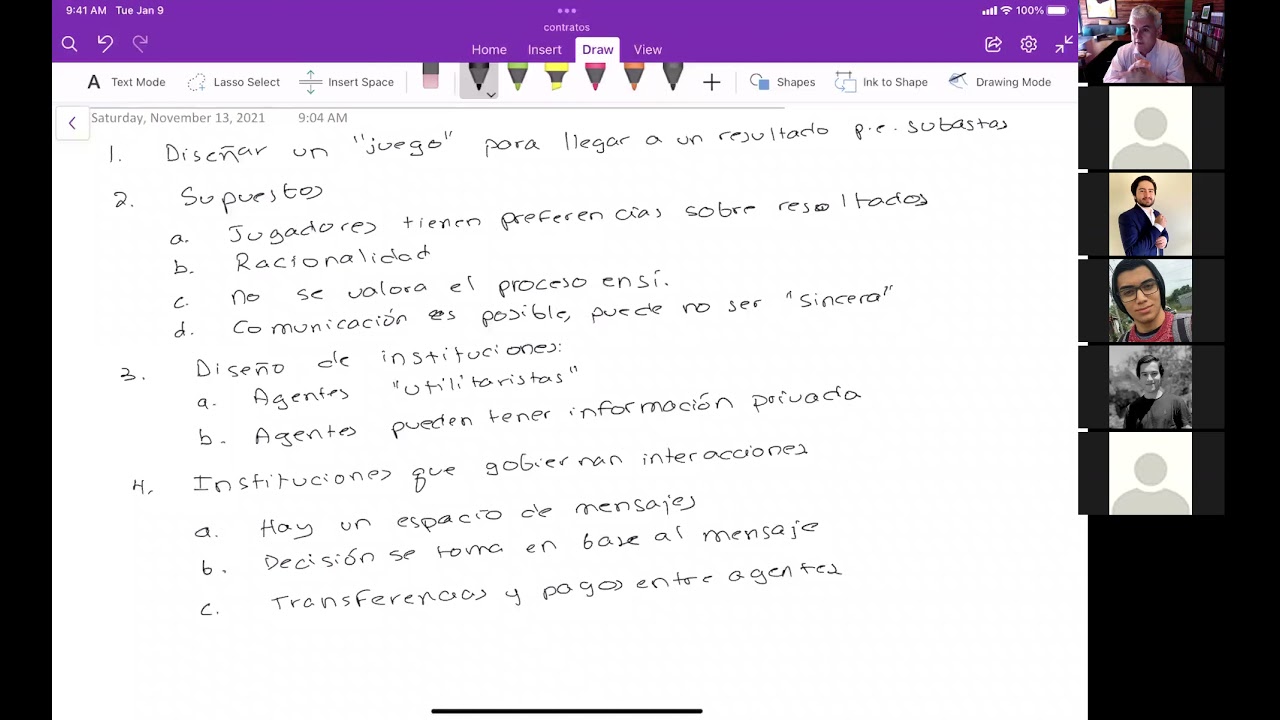 9:41 AM Tue Jan 9
100%
contratos
Home Insert Draw View
Text Mode Lasso Select Insert Space Shapes Ink to Shape Drawing Mode
Saturday, November 13, 2021 9:04 AM
1. Diseñar un "juego" para llegar a un resultado p.e. subastas
2. Supuestos
a. Jugadores tienen preferencias sobre resultados
b. Racionalidad
c. no se valora el proceso en sí.
d. Comunicación es posible, puede no ser "sincera"
3. Diseño de instituciones:
a. Agentes "utilitaristas"
b. Agentes pueden tener información privada
4. Instituciones que gobiernan interacciones
a. Hay un espacio de mensajes
b. Decisión se toma en base al mensaje
c. Transferencias y pagos entre agentes